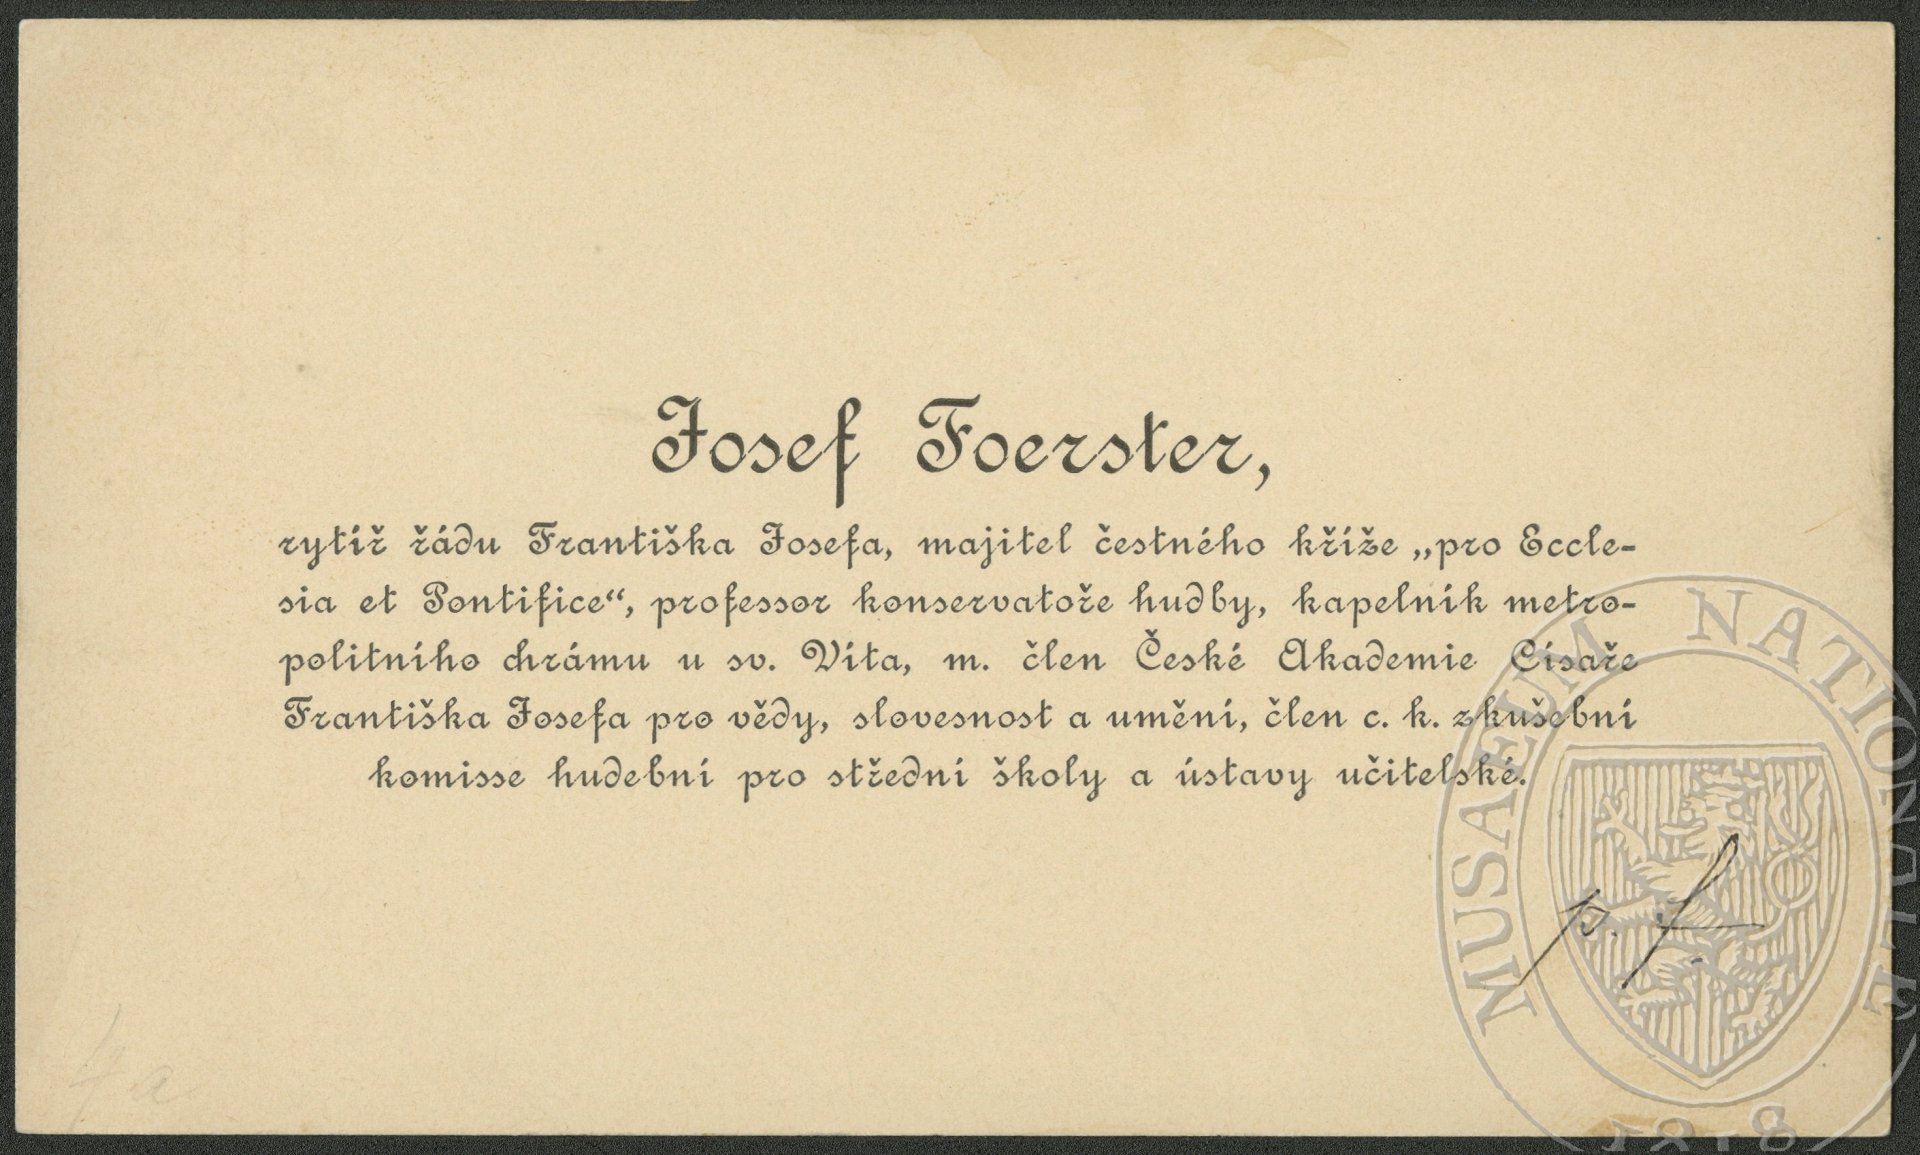 Josef Foerster,
rytíř řádu Františka Josefa, majitel čestného kříže „pro Eccle-
sia et Pontifice“, professor konservatoře hudby, kapelník metro-
politního chrámu u sv. Víta, m. člen České Akademie Císaře
Františka Josefa pro vědy, slovesnost a umění, člen c. k. zkušební
komisse hudební pro střední školy a ústavy učitelské.
p. f.
MUSAEUM NATIONALE
1818